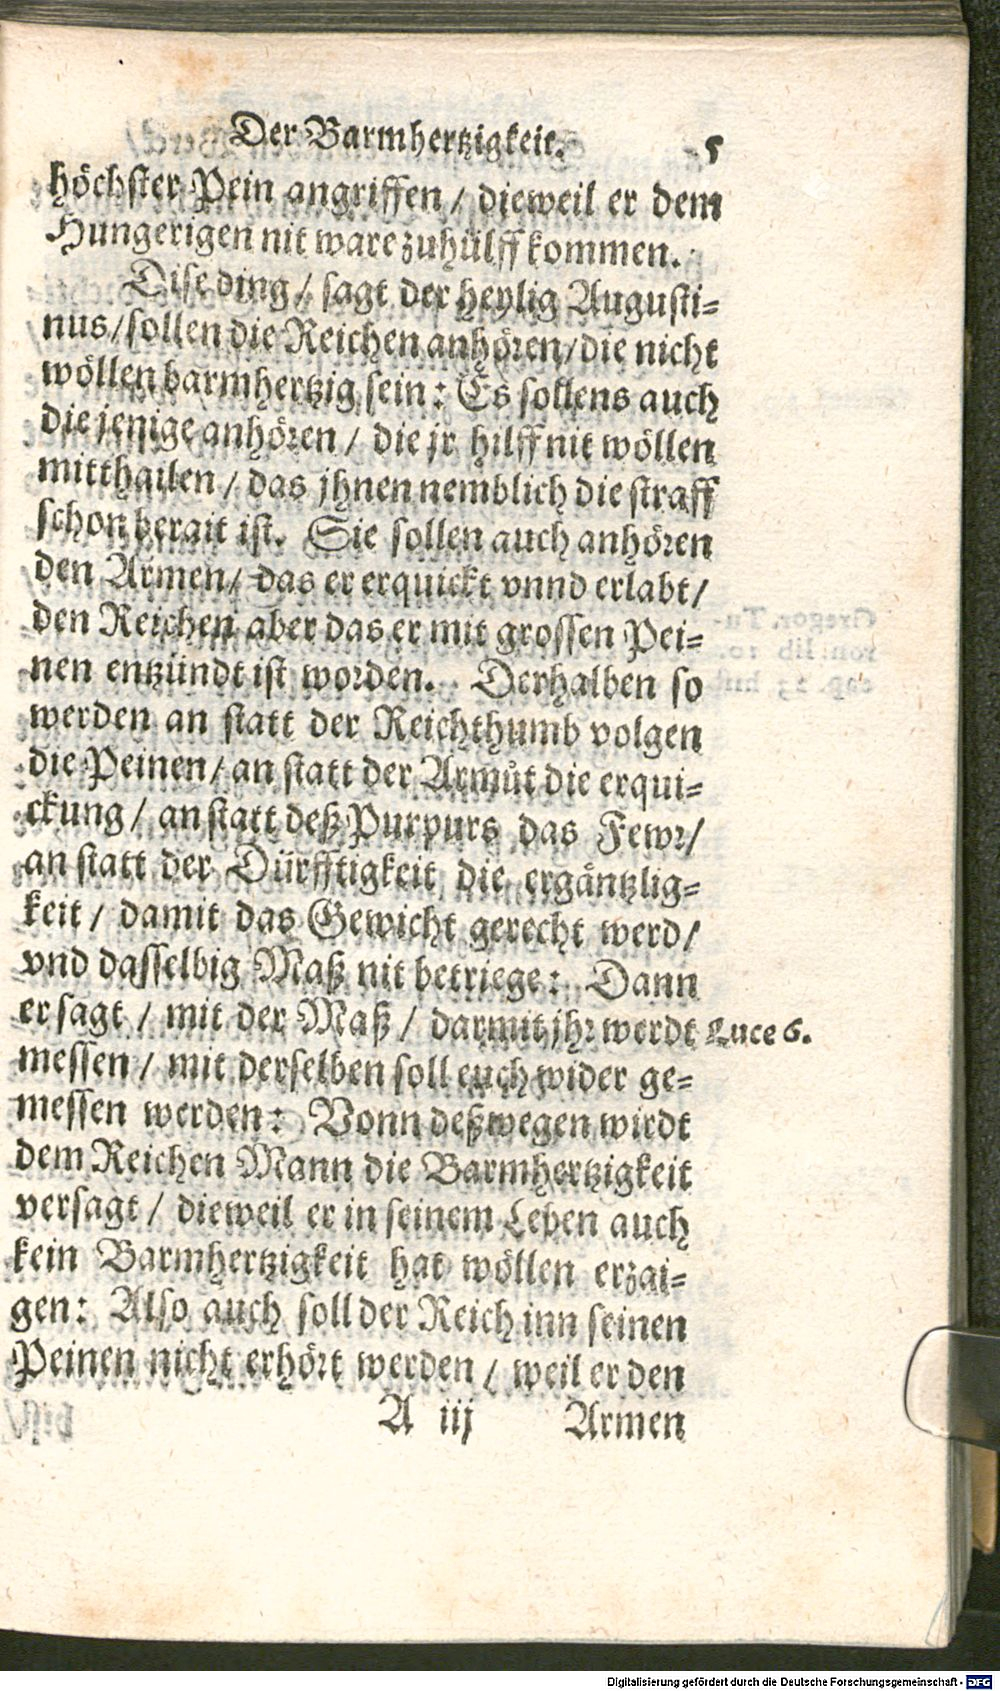 Der Barmhertzigkeit. 5
höchster Pein angriffen / dieweil er dem
Hungerigen nit ware zuhülff kommen.
Dise ding / sagt der heylig Augusti-
nus / sollen die Reichen anhören / die nicht
wöllen barmhertzig sein: Es sollens auch
die jenige anhören / die jr hilff nit wöllen
mitthailen / das jhnen nemblich die straff
schon berait ist. Sie sollen auch anhören
den Armen / das er erquickt vnnd erlabt /
den Reichen aber das er mit grossen Pei-
nen entzündt ist worden. Derhalben so
werden an statt der Reichthumb volgen
die Peinen / an statt der Armůt die erqui-
ckung / an statt deß Purpurs das Fewr /
an statt der Dürfftigkeit die ergäntzlig-
keit / damit das Gewicht gerecht werd /
vnd dasselbig Maß nit betriege: Dann
er sagt / mit der Maß / darmit jhr werdt Luce 6.
messen / mit derselben soll euch wider ge-
messen werden: Vonn deßwegen wirdt
dem Reichen Mann die Barmhertzigkeit
versagt / dieweil er in seinem Leben auch
kein Barmhertzigkeit hat wöllen erzai-
gen: Also auch soll der Reich inn seinen
Peinen nicht erhört werden / weil er den
A iij Armen
Digitalisierung gefördert durch die Deutsche Forschungsgemeinschaft - DFG